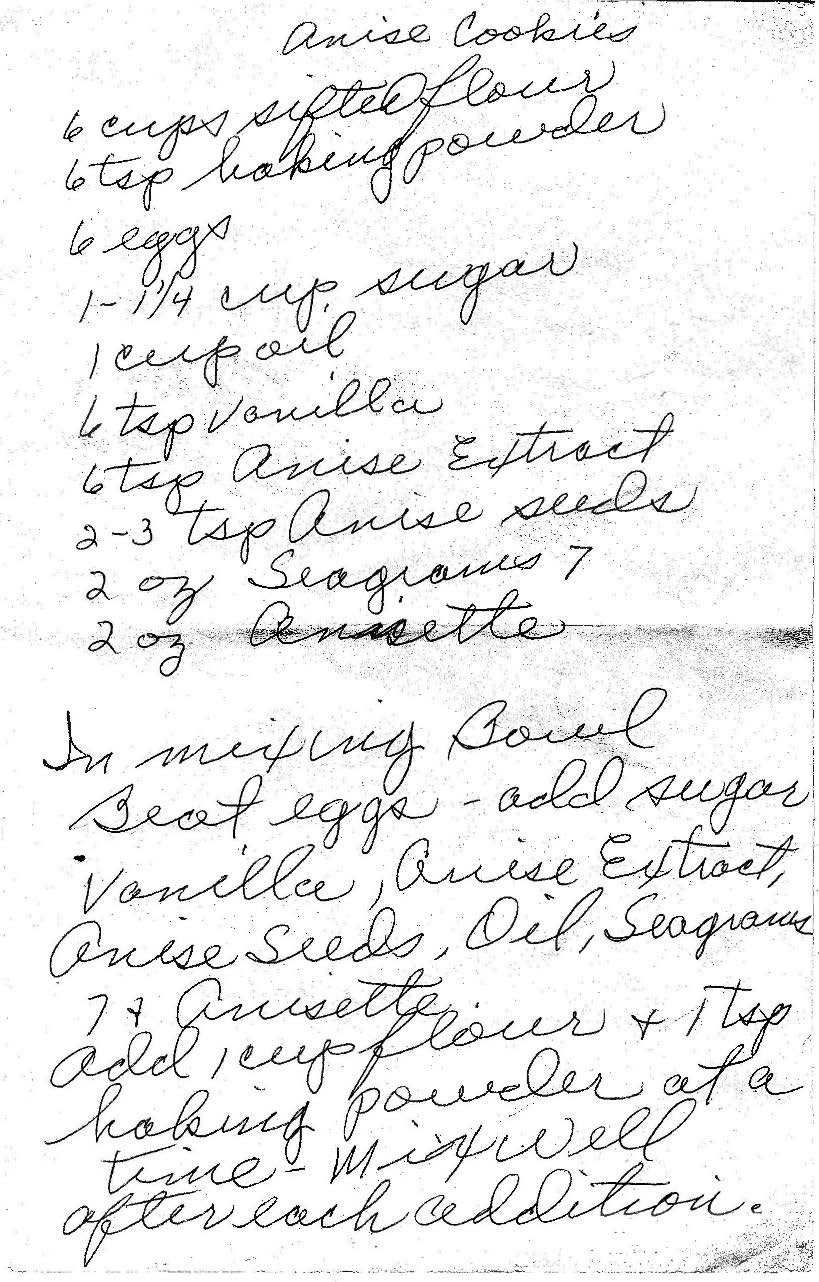 Anise Cookies
6 cups sifted flour
6 tsp baking powder
6 eggs
1-1 1/4 cup sugar
1 cup oil
6 tsp vanilla
6 tsp Anise Extract
2-3 tsp Anise seeds
2 oz Seagrams 7
2 oz Anisette
In mixing Bowl
Beat eggs - add sugar
Vanilla, Anise Extract,
Anise Seeds, Oil, Seagrams
7 + Anisette.
add 1 cup flour + 1 tsp
baking powder at a
time - Mix well
after each addition.